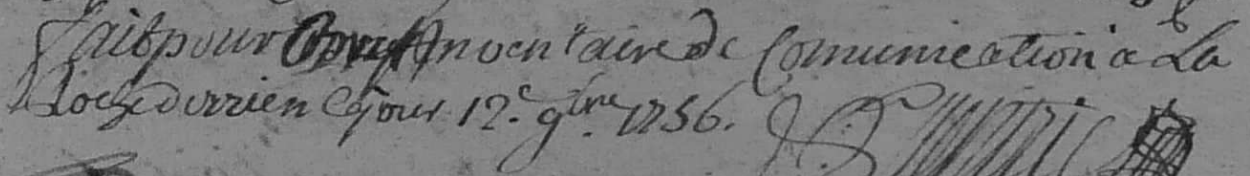 fait pour Inventaire de Comunication a La
Rochederrien Ce jour 12.e 9bre 1756.